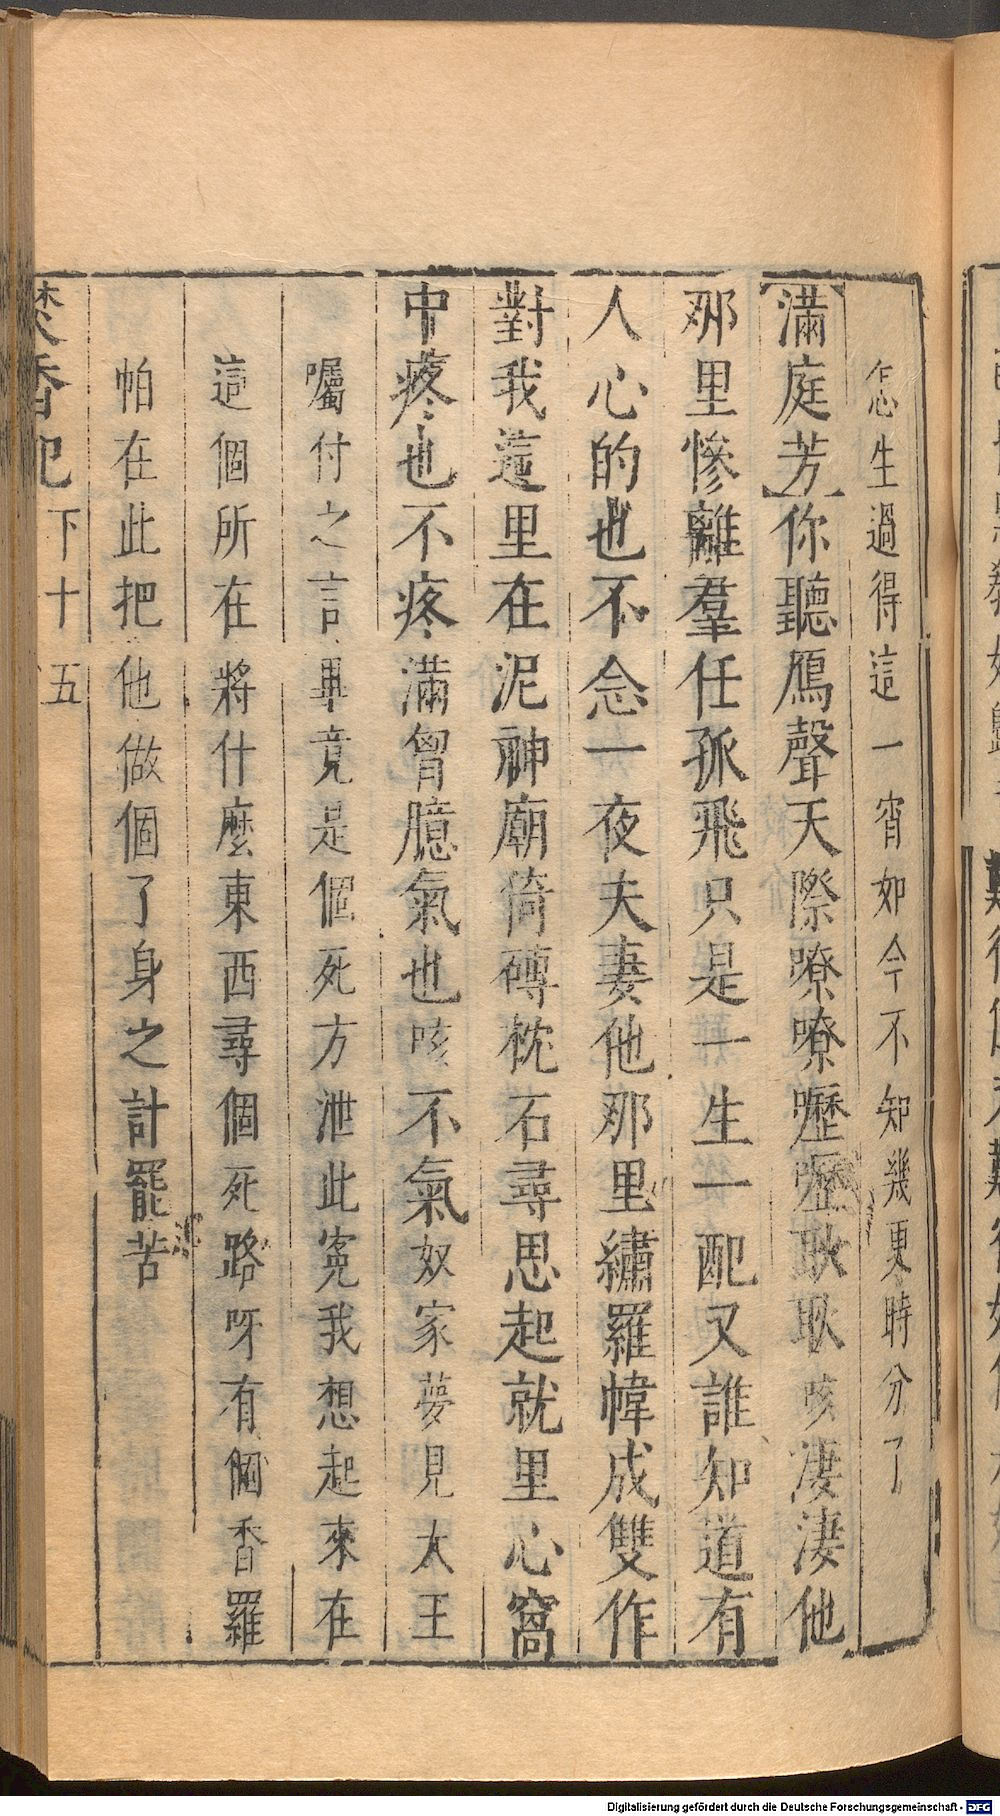 怎生過得這一宵如今不知幾更時分了
【滿庭芳】你聽鴈聲天際嘹嘹嚦嚦耿耿咳淒淒他
那里慘離羣任孤飛只是一生一配又誰知道有
人心的也不念一夜夫妻他那里繡羅幃成雙作
對我這里在泥神廟倚磚枕石尋思起就里心窩
中疼也不疼滿胷臆氣也咳不氣奴家夢見大王
囑付之言畢竟是個死方泄此寃我想起來在
這個所在將什麼東西尋個死路呀有個香羅
帕在此把他做個了身之計罷苦
焚香記
下十五
Digitalisierung gefördert durch die Deutsche Forschungsgemeinschaft - DFG